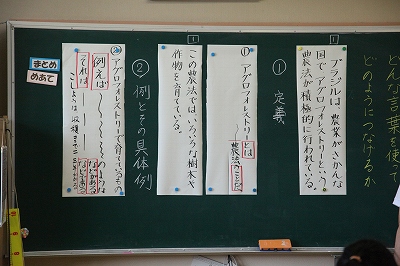 どんな言葉を使って
どのようにつなげるか
1
ブラジルは、農業がさかんな
国で、アグロフォレストリーという
農法が積極的に行われている。
① 定義
①
アグロフォレストリーとは
農法のことで
1
この農法では、いろいろな樹木や
作物を育てている。
② 例とその具体例
②
アグロフォレストリーで育てているもの
例えば
ような
それは
などがある
こしょうは
まとめ
めあて